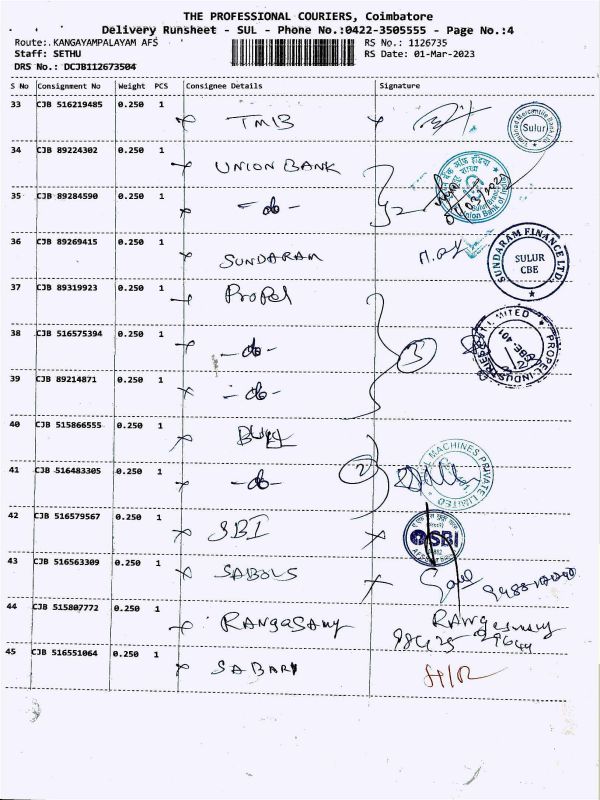 THE PROFESSIONAL COURIERS, Coimbatore
Delivery Runsheet - SUL - Phone No.:0422-3505555 - Page No.:4
Route:. KANGAYAMPALAYAM AFS RS No.: 1126735
Staff: SETHU RS Date: 01-Mar-2023
DRS No.: DCJB112673504
S No Consignment No Weight PCS Consignee Details Signature
33 CJB 516219485 0.250 1 TMB
Sulur
34 CJB 89224302 0.250 1 UNION BANK
35 CJB 89284590 0.250 1 -do- 2
Union Bank of India
36 CJB 89269415 0.250 1 SUNDARAM
SUNDARAM FINANCE LTD
SULUR
CBE
37 CJB 89319923 0.250 1 Propel
38 CJB 516575394 0.250 1 -do- 3
PROPEL INDUSTRIES PRIVATE LIMITED
39 CJB 89214871 0.250 1 -do-
40 CJB 515866555 0.250 1
41 CJB 516483305 0.250 1 -do- 2
MACHINES PRIVATE LIMITED
42 CJB 516579567 0.250 1 SBI
SBI
43 CJB 516563309 0.250 1 SABOLS
44 CJB 515807772 0.250 1 RANGASAMY
45 CJB 516551064 0.250 1 SABARI